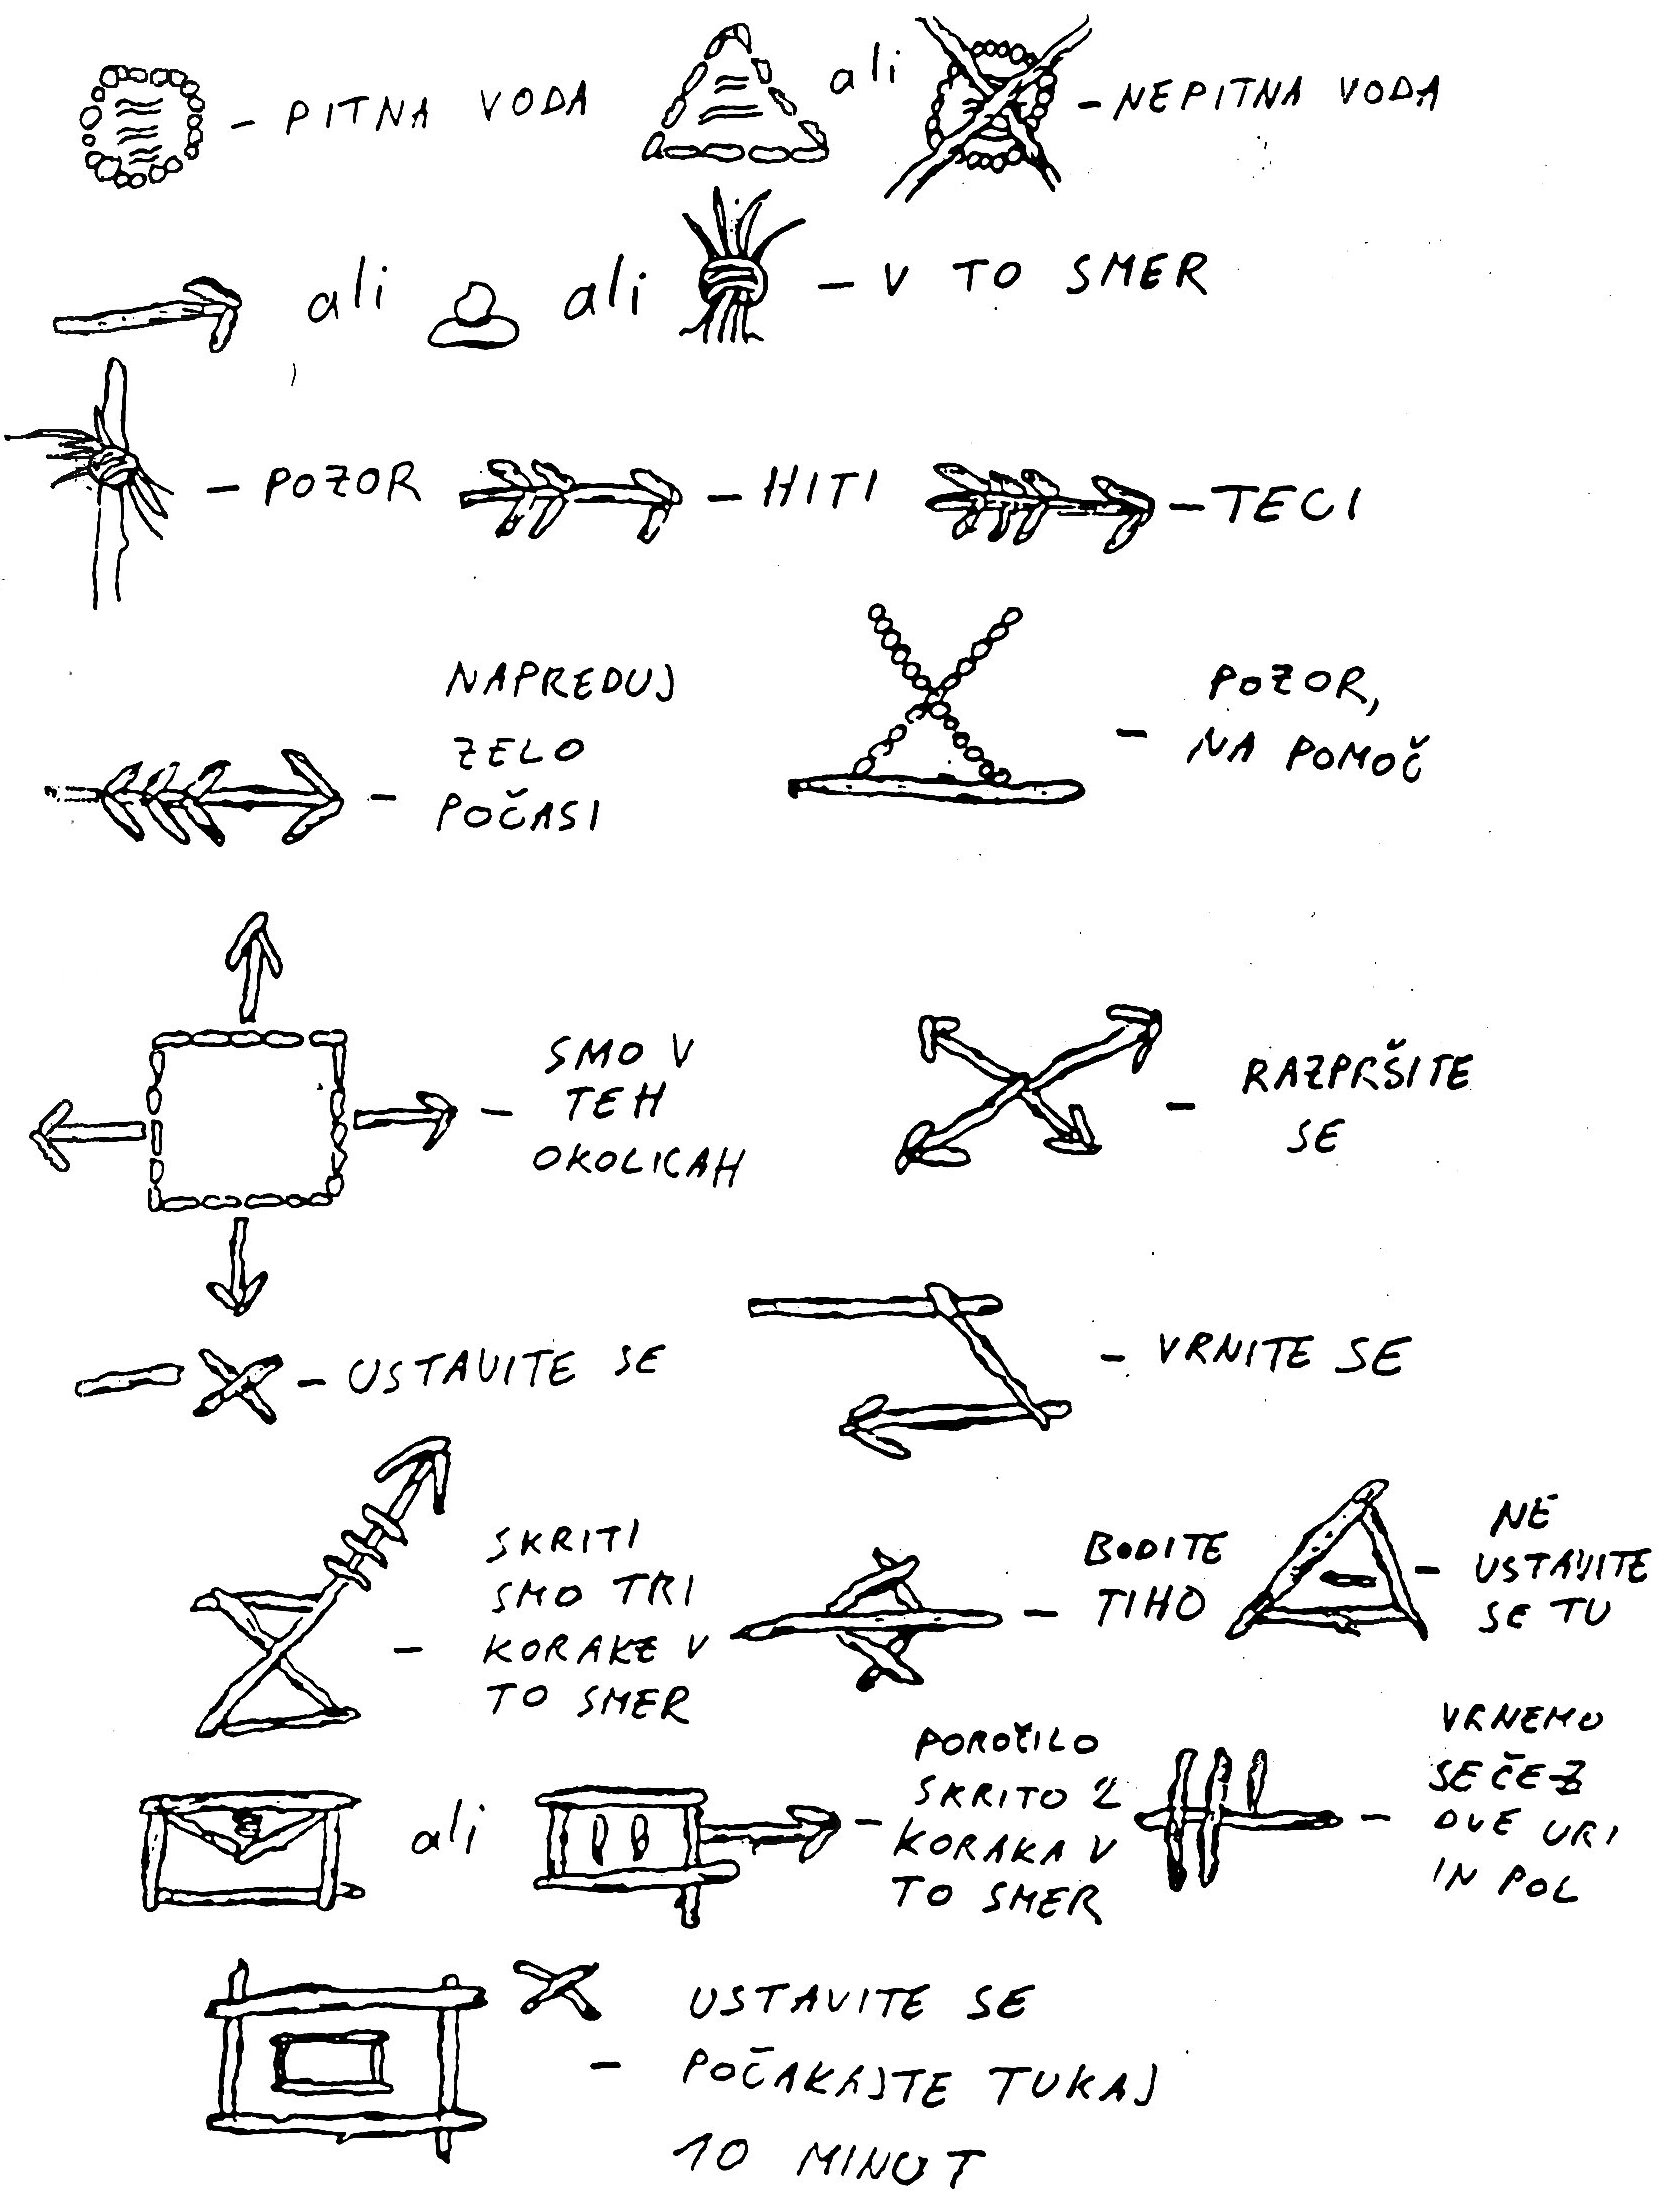 - PITNA VODA
ali
- NEPITNA VODA
ali
ali
- V TO SMER
- POZOR
- HITI
- TECI
- NAPREDUJ
ZELO
POČASI
- POZOR,
NA POMOČ
- SMO V
TEH
OKOLICAH
- RAZPRŠITE
SE
- USTAVITE SE
- VRNITE SE
- SKRITI
SMO TRI
KORAKE V
TO SMER
- BODITE
TIHO
- NE
USTAVITE
SE TU
ali
- POROČILO
SKRITO 2
KORAKA V
TO SMER
- VRNEMO
SE ČEZ
DVE URI
IN POL
- USTAVITE SE
POČAKAJTE TUKAJ
10 MINUT